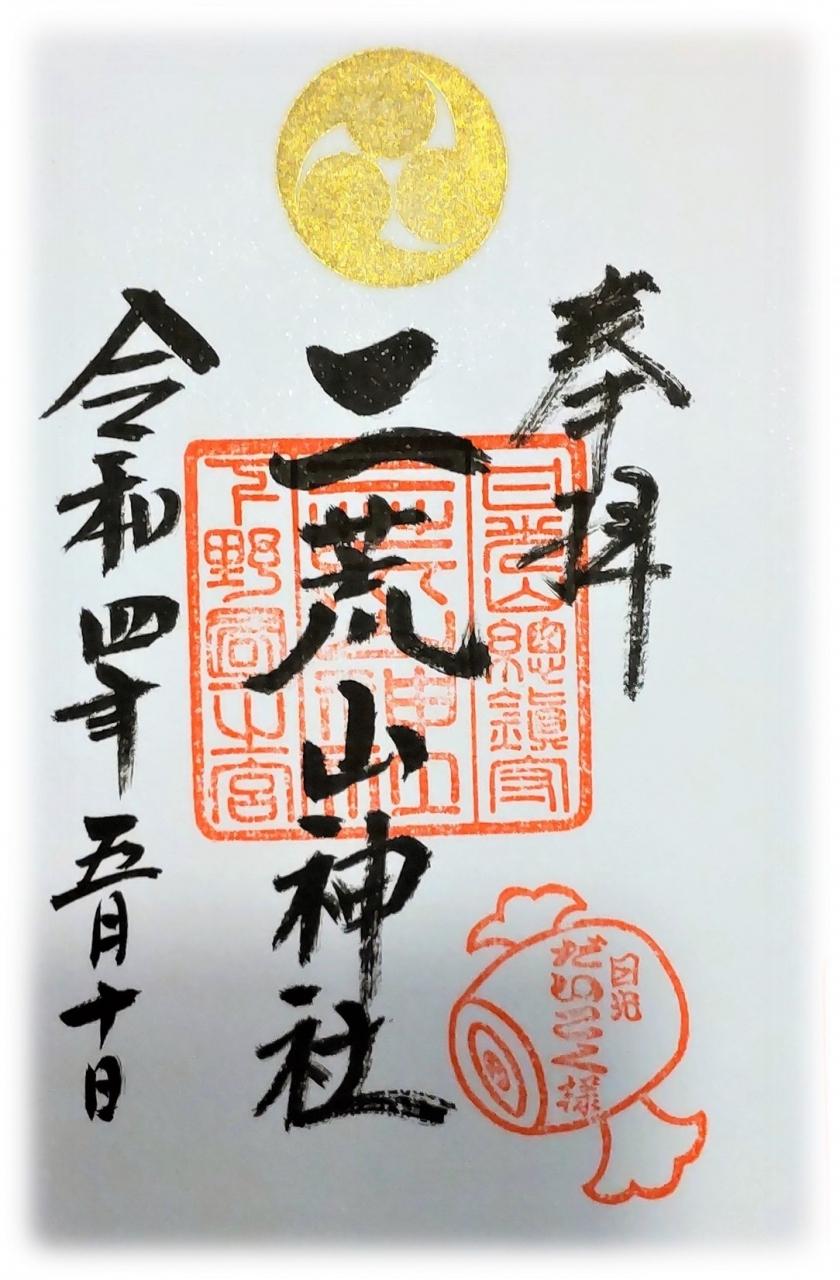 奉拝
日光山總鎮守
二荒山神社
二荒山神社
下野國一之宮
令和四年五月十日
日光
だいこく様